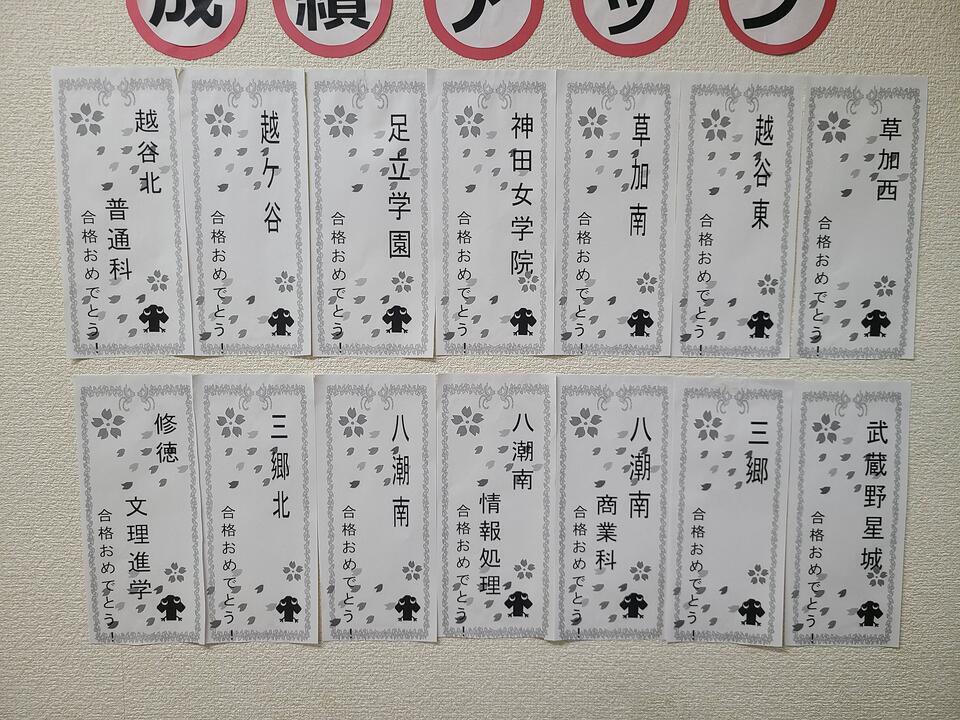 成績アップ
越谷北
普通科
合格おめでとう!
越ケ谷
合格おめでとう!
足立学園
合格おめでとう!
神田女学院
合格おめでとう!
草加南
合格おめでとう!
越谷東
合格おめでとう!
草加西
合格おめでとう!
修徳
文理進学
合格おめでとう!
三郷北
合格おめでとう!
八潮南
合格おめでとう!
八潮南
情報処理
合格おめでとう!
八潮南
商業科
合格おめでとう!
三郷
合格おめでとう!
武蔵野星城
合格おめでとう!